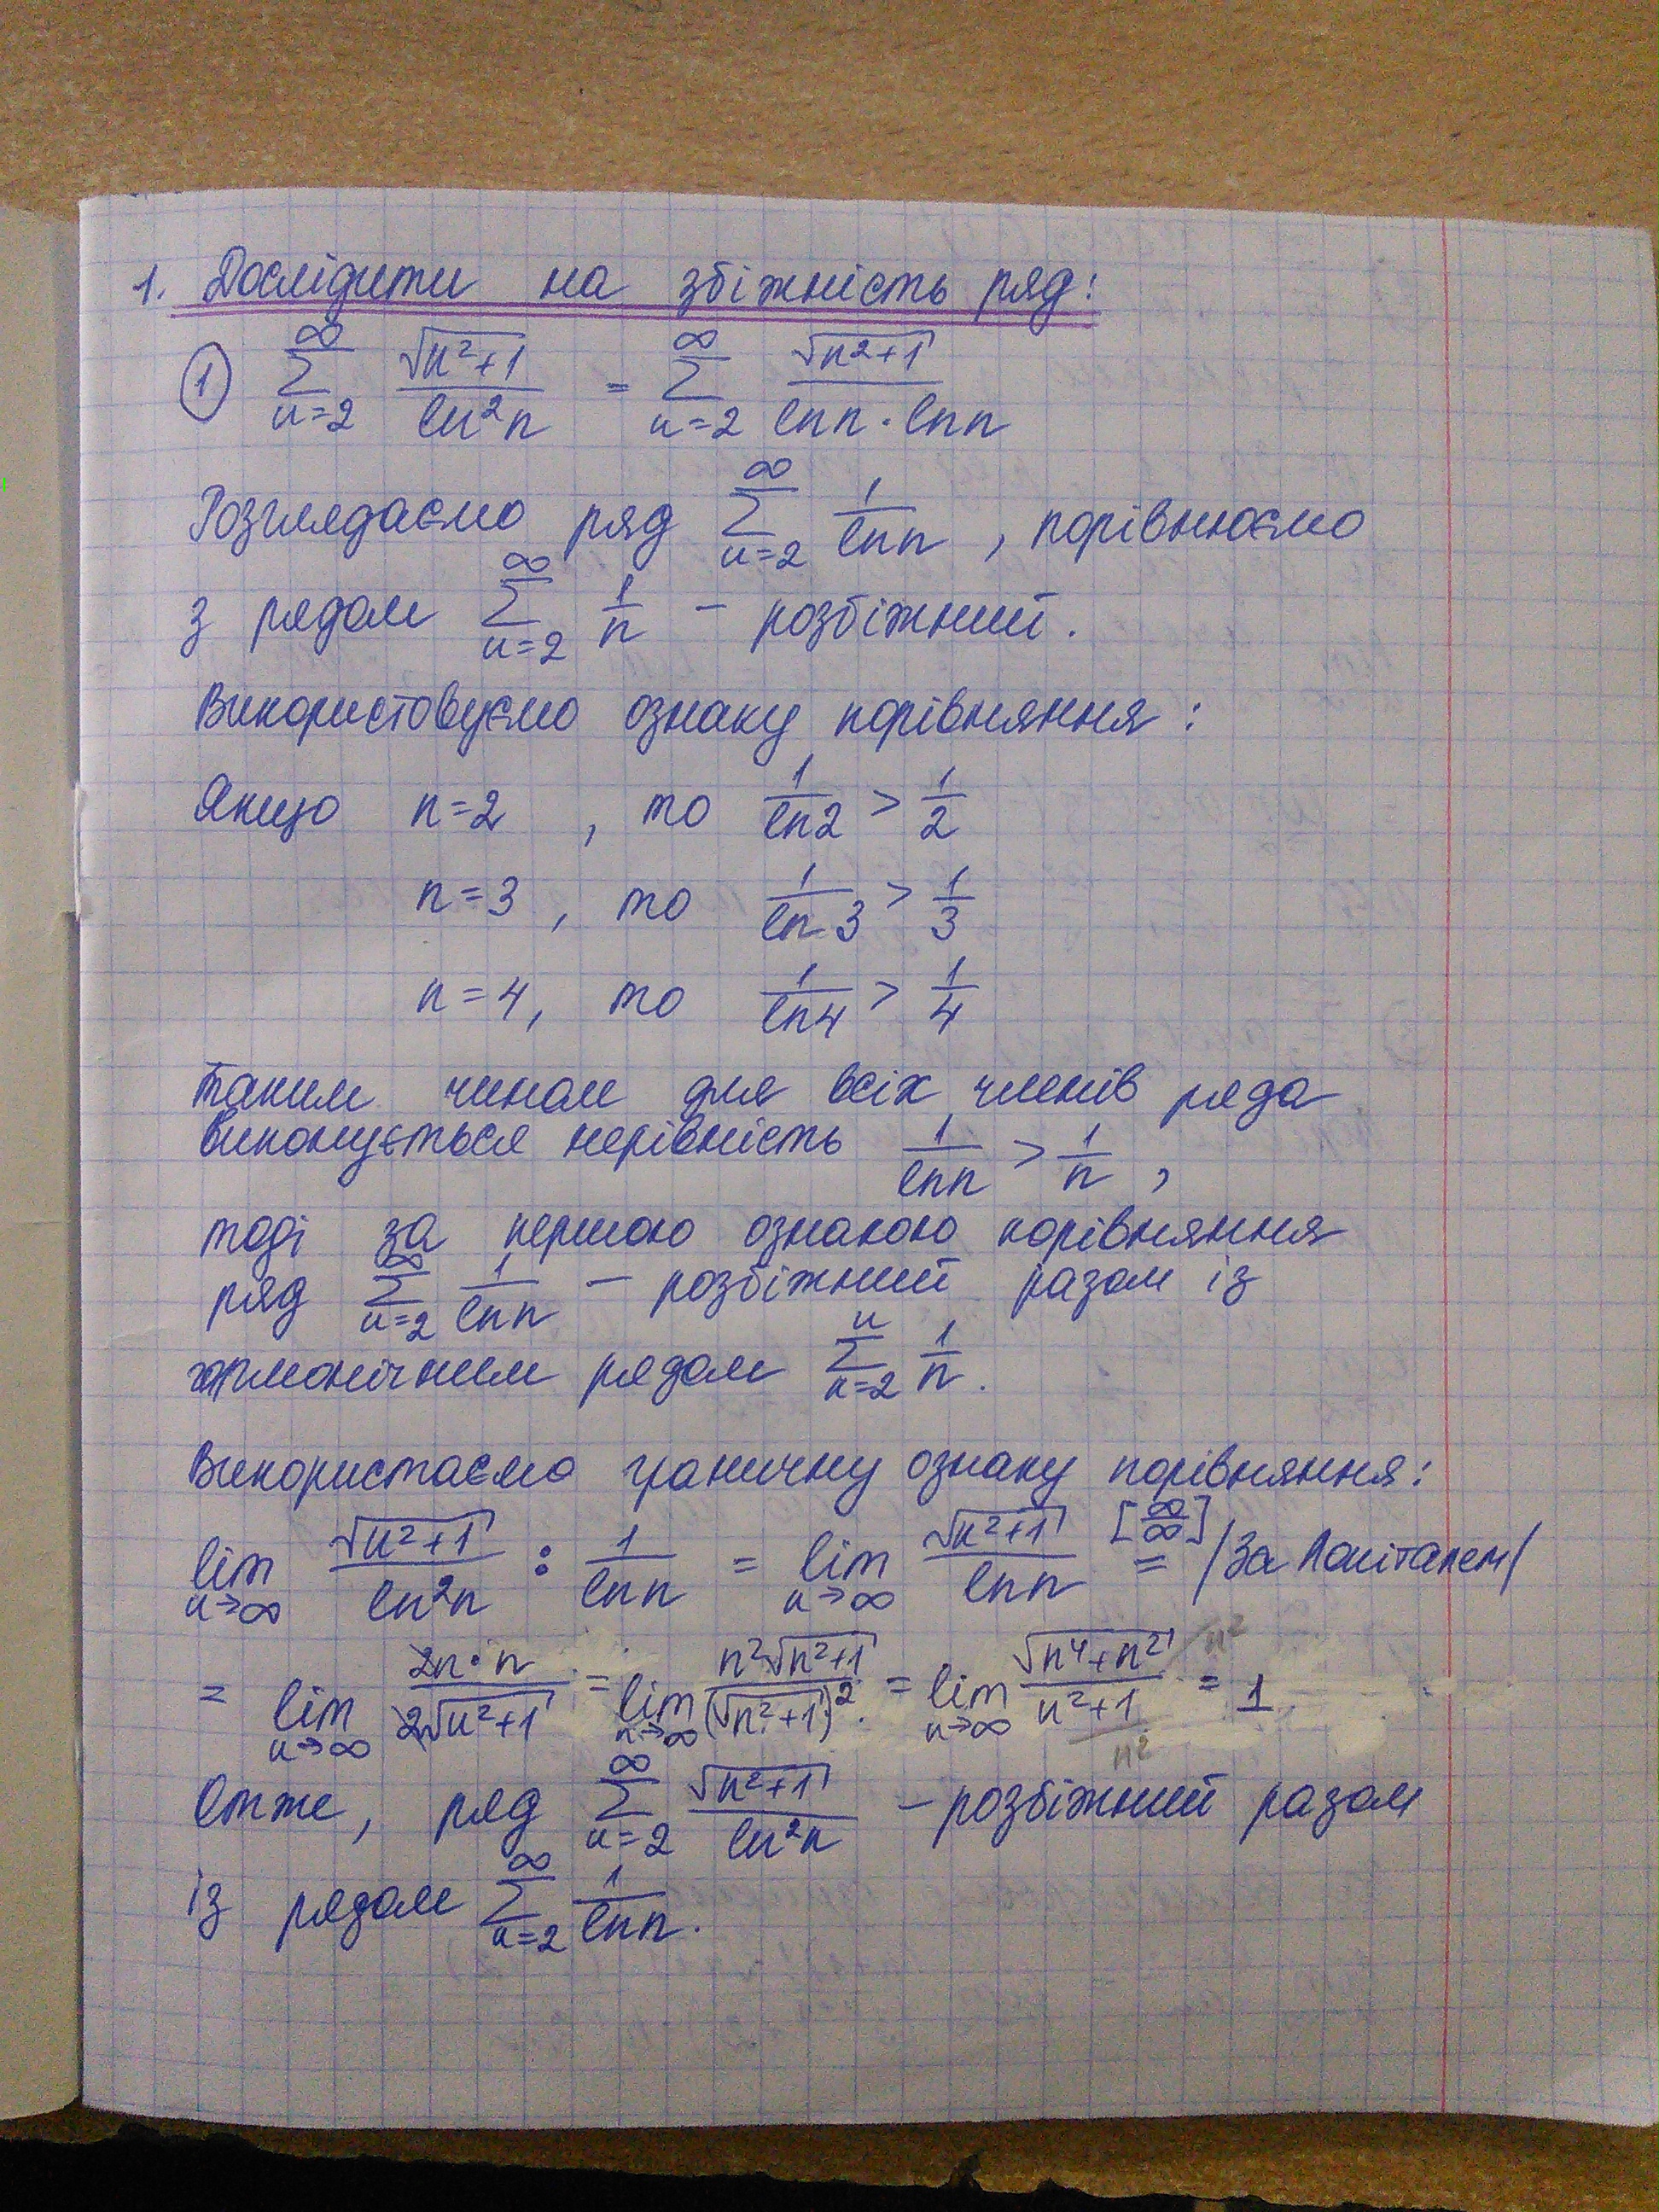 1. Дослідити на збіжність ряд:
① ∞∑n=2 √(n²+1) / ln²n = ∞∑n=2 √(n²+1) / (ln n · ln n)
Розглядаємо ряд ∞∑n=2 1/ln n , порівнюємо
з рядом ∞∑n=2 1/n – розбіжний.
Використовуємо ознаку порівняння :
Якщо n=2 , то 1/ln2 > 1/2
n=3 , то 1/ln 3 > 1/3
n=4, то 1/ln4 > 1/4
Таким чином для всіх членів ряда
виконується нерівність 1/ln n > 1/n ,
тоді за першою ознакою порівняння
ряд ∞∑n=2 1/ln n – розбіжний разом із
гармонічним рядом n∑n=2 1/n.
Використаємо граничну ознаку порівняння:
lim n→∞ √(n²+1) / ln²n : 1/ln n = lim n→∞ √(n²+1) / ln n [∞/∞] = /За Лопіталем/
= lim n→∞ 2n·n / 2√(n²+1) = lim n→∞ n²√(n²+1) / (√(n²+1))² = lim n→∞ √(n⁴+n²) /n² / n²+1 /n² = 1
Отже, ряд ∞∑n=2 √(n²+1) / ln²n – розбіжний разом
із рядом ∞∑n=2 1/ln n.